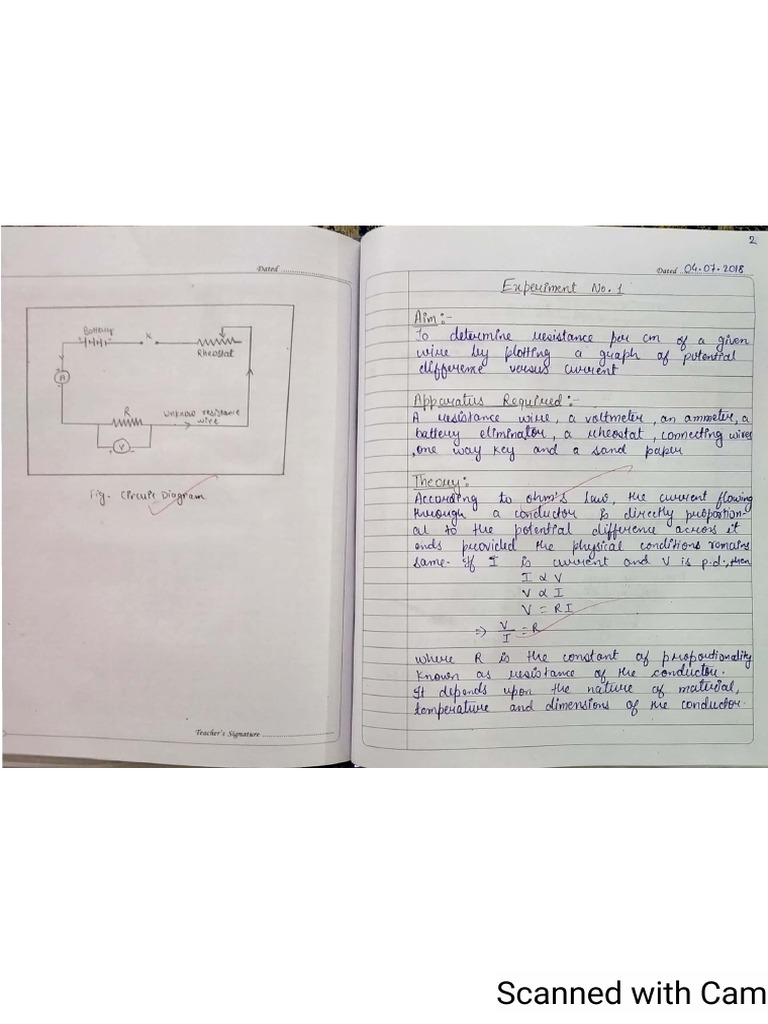 Dated ..................
Battery
K
Rheostat
A
R
unknow resistance
wire
V
Fig. Circuit Diagram
Teacher's Signature ..................
2
Dated ..04.07.2018
Experiment No. 1
Aim:-
To determine resistance per cm of a given
wire by plotting a graph of potential
difference versus current
Apparatus Required:-
A resistance wire, a voltmeter, an ammeter, a
battery eliminator, a rheostat, connecting wires
, one way key and a sand paper
Theory:
According to ohm's law, the current flowing
through a conductor is directly proportion-
al to the potential difference across it
ends provided the physical conditions remains
same. If I is current and V is p.d., then
I α V
V α I
V = RI
=> V/I = R
where R is the constant of proportionality
known as resistance of the conductor.
It depends upon the nature of material,
temperature and dimensions of the conductor.
Scanned with Cam